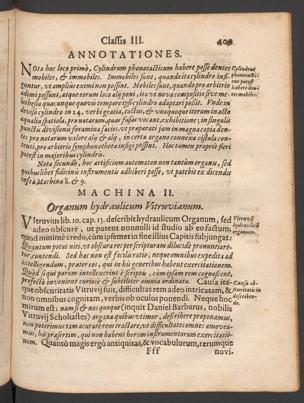 Classis III. 409
ANNOTATIONES.
Nota hoc loco primò, Cylindrum phonotacticum habere posse dentes
mobiles, & immobiles. Immobiles sunt, quando ita cylindro infi-
guntur, vt ampliùs eximi non possint. Mobiles sunt, quando pro arbitrio
adimi possunt, atque eorum loco alÿ poni, ita vt nova compositio sive me-
lothesia quacunque quovis tempore ipsi cylindro adaptari possit. Vnde in
diviso cylindro in 24, verbi gratia, tactus, & vnoquoque iterum in
aqualia spatiola, pro notarum, quas fusas vocant, exhibitione; in singulis
punctis divisionis foramina fuerint, vt praparati jam in magna copia den-
tes pro notarum valore alÿ & alÿ, in certa organo connexa cistula con-
tenti, pro arbitrio symphoneta infigi possint. Hoc tamen propriè fieri
potest in majoribus cylindris.
Nota secundò, hoc artificium automaton non tantùm organu, sed
quibuslibet fidicinis instrumentis adhiberi posse, vt patebit ex dicendis
infrà Machina 8. & 9.
Cylindrus
phonotacti-
cus potest
habere den-
tes mobiles.
MACHINA II.
Organum hydraulicum Vitruvianum.
Vitruvius lib. 10. cap. 13. describit hydraulicum Organum, sed
adeo obscurè, ut putent nonnulli id studio ab eo factum,
quod minimè credo, cùm ipsemet in fine illius Capitis subjungat:
Quantum potui niti, vt obscura res per scripturam dilucidè pronuntiare-
tur, contendi. Sed hac non est facilis ratio; neque omnibus expedita ad
intelligendum, prater eos, qui in his generibus habent exercitationem.
Quòd si qui parum intellexerint è scriptis, cùm ipsam rem cognoscent,
profectò invenient curiosè & subtiliter omnia ordinata. Causa ita-
que obscuritatis Vitruvij fuit, difficultas rem adeo intricatam, &
non omnibus cognitam, verbis ob oculos ponendi. Neque hoc
mirum est: namsi & nos quoque (inquit Daniel Barbarus, nobilis
Vitruvij Scholiastes) organa quibus vtimur, describere proponamus,
non poterimus tam accuratè rem tractare, vt difficultates omnes amovea-
mus, his prasertim, qui non habent horum instrumentorum exercitatio-
nem. Quantò magis ergò antiquitas, & vocabulorum, rerumque
Vitruvij
hydraulicum
organum.
Causa ob-
scuritatis in
describen-
do.
Fff
novi-